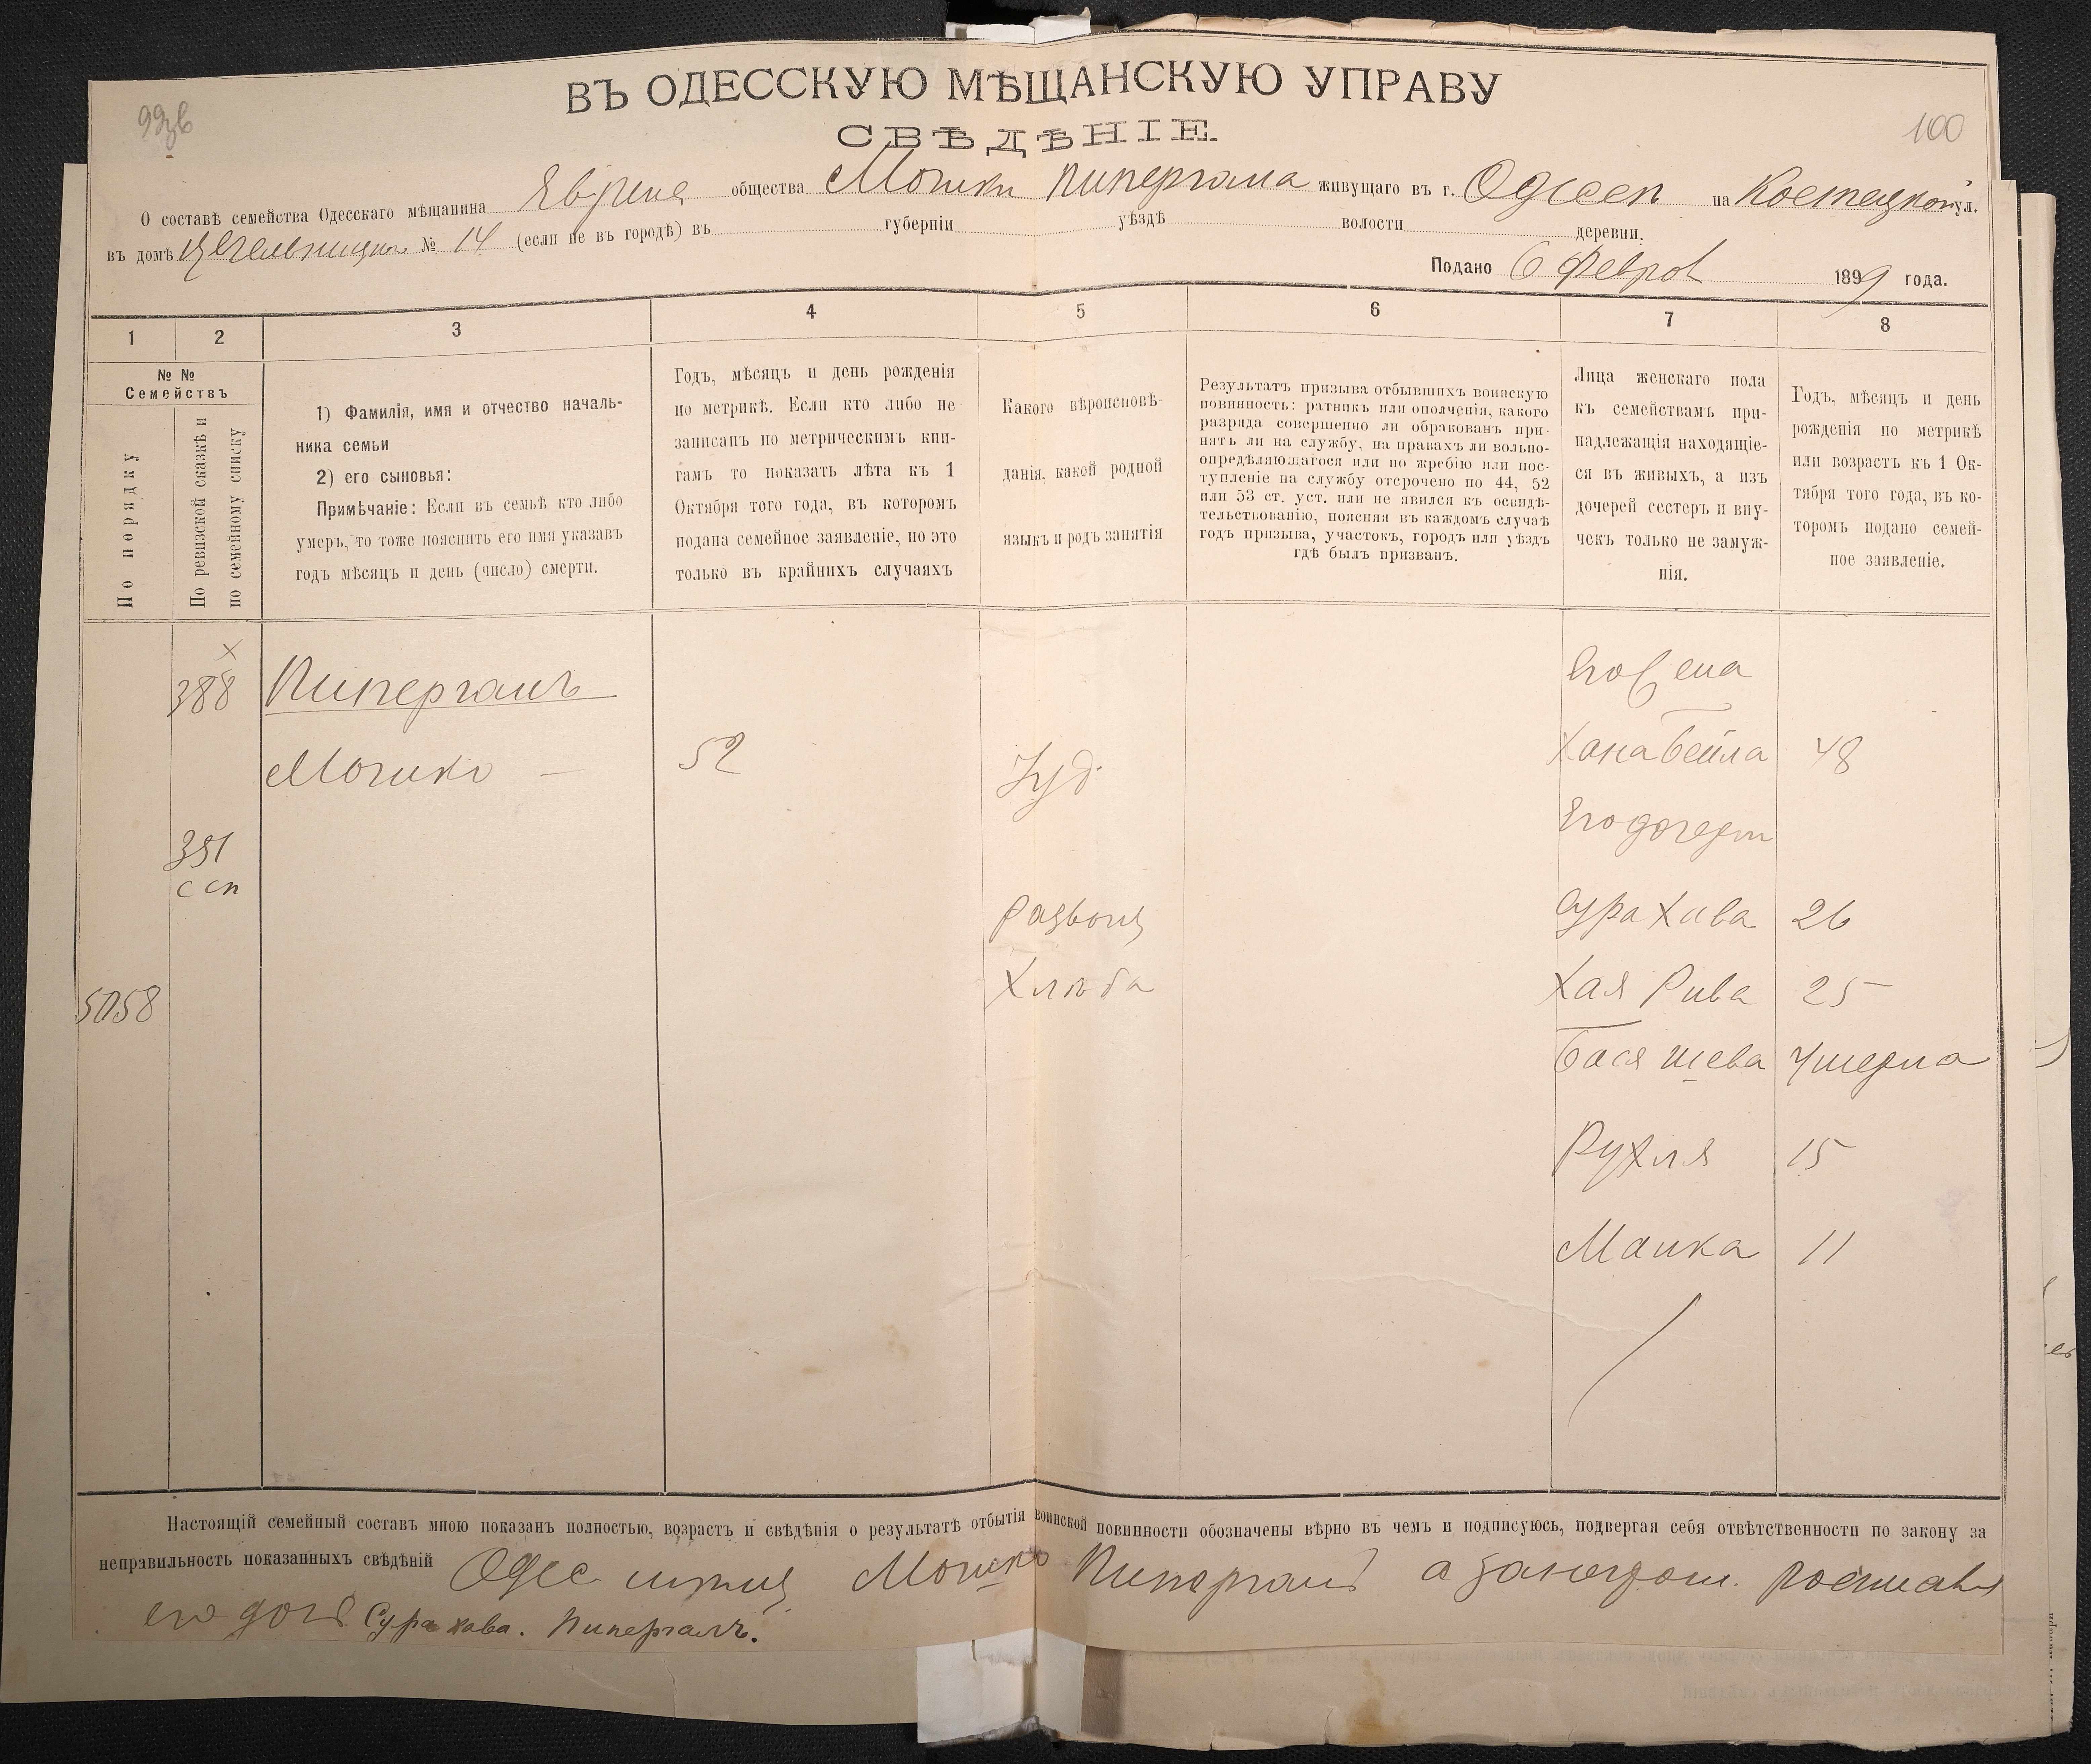 100
ВЪ ОДЕССКУЮ МѢЩАНСКУЮ УПРАВУ
СВѢДѢНІЕ
О составѣ семейства Одесскаго мѣщанина общества Мошки Пипергала живущаго въ г. Одессѣ на Костецкой ул.
въ домѣ № 14 (если не въ городѣ) въ губерніи уѣздѣ волости деревни.
Подано 6 Феврал 1899 года.
1 2 3 4 5 6 7 8
№ №
Семействъ
По порядку
По ревизской сказкѣ и
по семейному списку
1) Фамилія, имя и отчество началь-
ника семьи
2) его сыновья:
Примѣчаніе: Если въ семьѣ кто либо
умеръ, то тоже пояснить его имя указавъ
годъ мѣсяцъ и день (число) смерти.
Годъ, мѣсяцъ и день рожденія
по метрикѣ. Если кто либо не
записанъ по метрическимъ кни-
гамъ то показать лѣта къ 1
Октября того года, въ которомъ
подана семейное заявленіе, но это
только въ крайнихъ случаяхъ
Какого вѣроисповѣ-
данія, какой родной
языкъ и родъ занятія
Результатъ призыва отбывшихъ воинскую
повинность: ратникъ или ополченія, какого
разряда совершенно ли обракованъ при-
нятъ ли на службу, на правахъ ли вольно-
опредѣляющагося или по жребію или пос-
тупленіе на службу отсрочено по 44, 52
или 53 ст. уст. или не явился къ освидѣ-
тельствованію, поясняя въ каждомъ случаѣ
годъ призыва, участокъ, городъ или уѣздъ
гдѣ былъ призванъ.
Лица женскаго пола
къ семействамъ при-
надлежащія находящіе-
ся въ живыхъ, а изъ
дочерей сестеръ и вну-
чекъ только не замуж-
нія.
Годъ, мѣсяцъ и день
рожденія по метрикѣ
или возрастъ къ 1 Ок-
тября того года, въ ко-
торомъ подано семей-
ное заявленіе.
х
388 Пипергалъ
Его жена
Мошко — 52 Іуд. Хана Бейла 48
Его дочери
391
с сп
Развозц Сура Хава 26
5058 Хлѣба Хая Рива 25
Бася Шева Умерла
Рухля 15
Манка 11
Настоящій семейный составъ мною показанъ полностью, возрастъ и свѣдѣнія о результатѣ отбытія воинской повинности обозначены вѣрно въ чемъ и подписуюсь, подвергая себя отвѣтственности по закону за
неправильность показанныхъ свѣдѣній Одес Мошко Пипергалъ а за
его Сура хава. Пипергалъ.